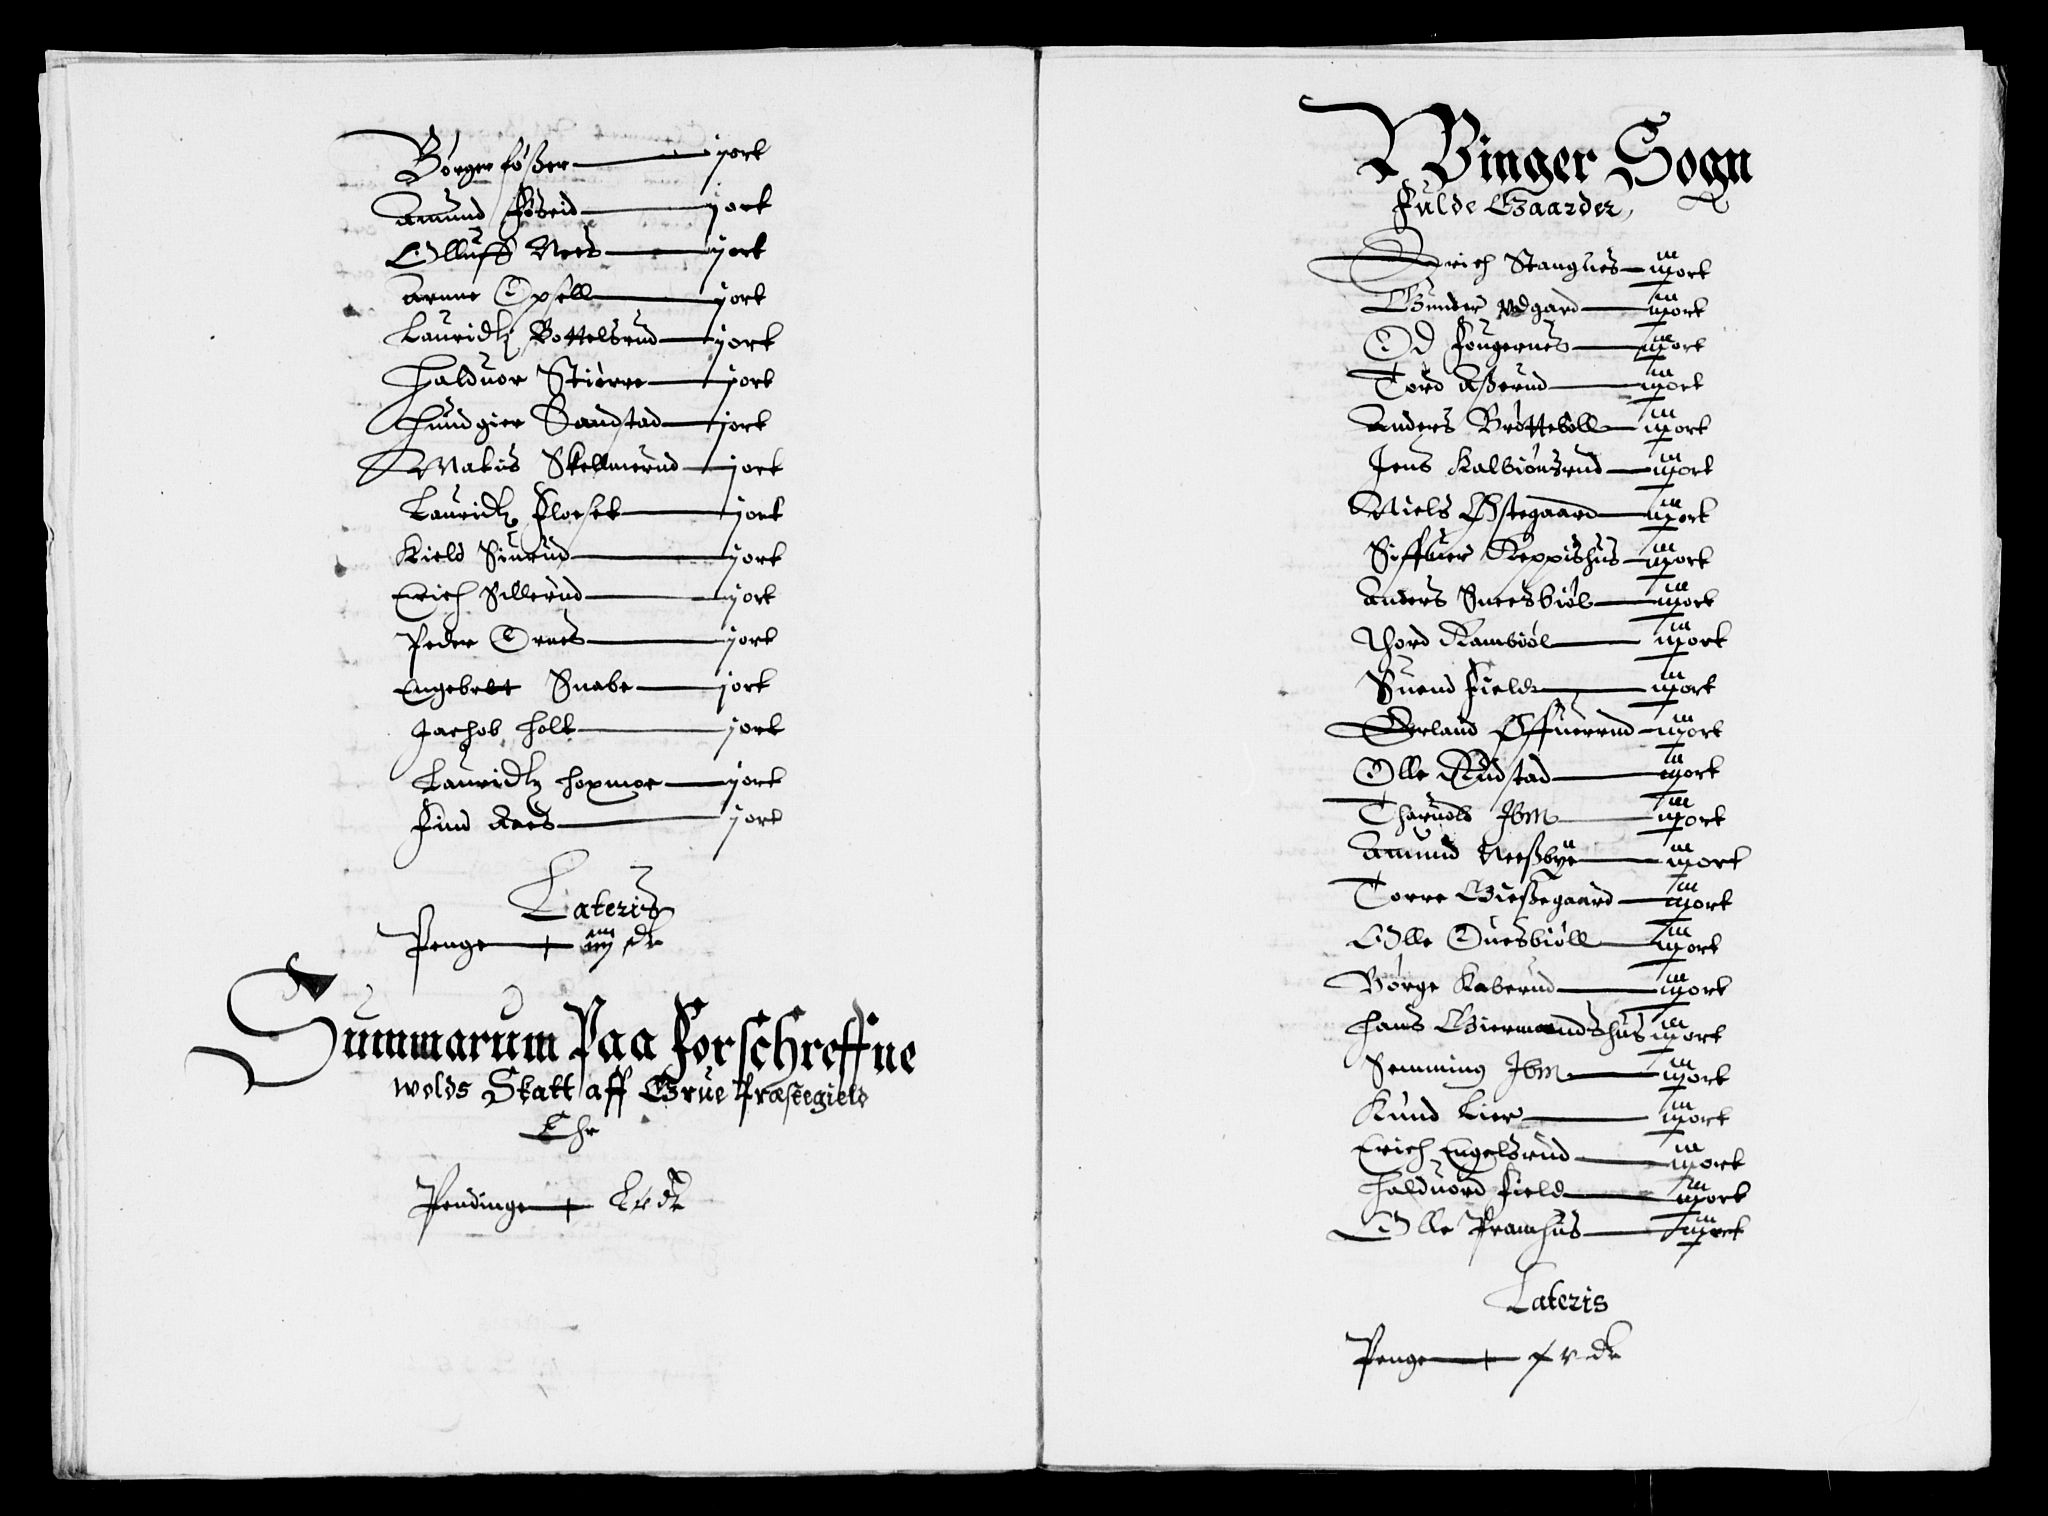 Børger foßer — j ort
Amund Føseid — j ort
Olluff Nees — j ort
Arnne Opsell — j ort
Lauridtz Bottelsrud — j ort
Halduor Stiørre — j ort
Hundgier Sandstad — j ort
Matis Skellnerud — j ort
Lauridtz Floeset — j ort
Kield Sinrud — j ort
Erich Sillerud — j ort
Peder Ornes — j ort
Engebret Snabe — j ort
Jachob Holt — j ort
Lauridtz Hoxmoe — j ort
Find Aaes — j ort
Lateris
Penge — iiij dr
Summarum Paa Forschreffne
wolds Skatt aff Grue Præstegield
Ehr
Pendinge — Lv dr
Winger Sogn
Fulde Gaarder
Erich Stangnes — iij ort
Gunder wdgard — iij ort
Od Fougernes — iij ort
Tord Aßerud — iij ort
Anders Brøttebøll — iij ort
Jens Kalbiønsrud — iij ort
Niels Østegaard — iij ort
Siffuer Keppishus — iij ort
Anders Sneesbiøl — iij ort
Thord Rambiøl — iij ort
Suend Field — iij ort
Erland Øffuerrud — iij ort
Olle Rudstad — iij ort
Tharuold Ibm — iij ort
Amund Neeßbye — iij ort
Torre Gießegaard — iij ort
Olle Ouesbiøll — iij ort
Børge Kaberud — iij ort
Hans Giermundshus iij ort
Semming Ibm — iij ort
Knud Lier — iij ort
Erich Engelsrud — iij ort
Halduord Field — iij ort
Olle Pramhus — iij ort
Lateris
Penge — xv dr